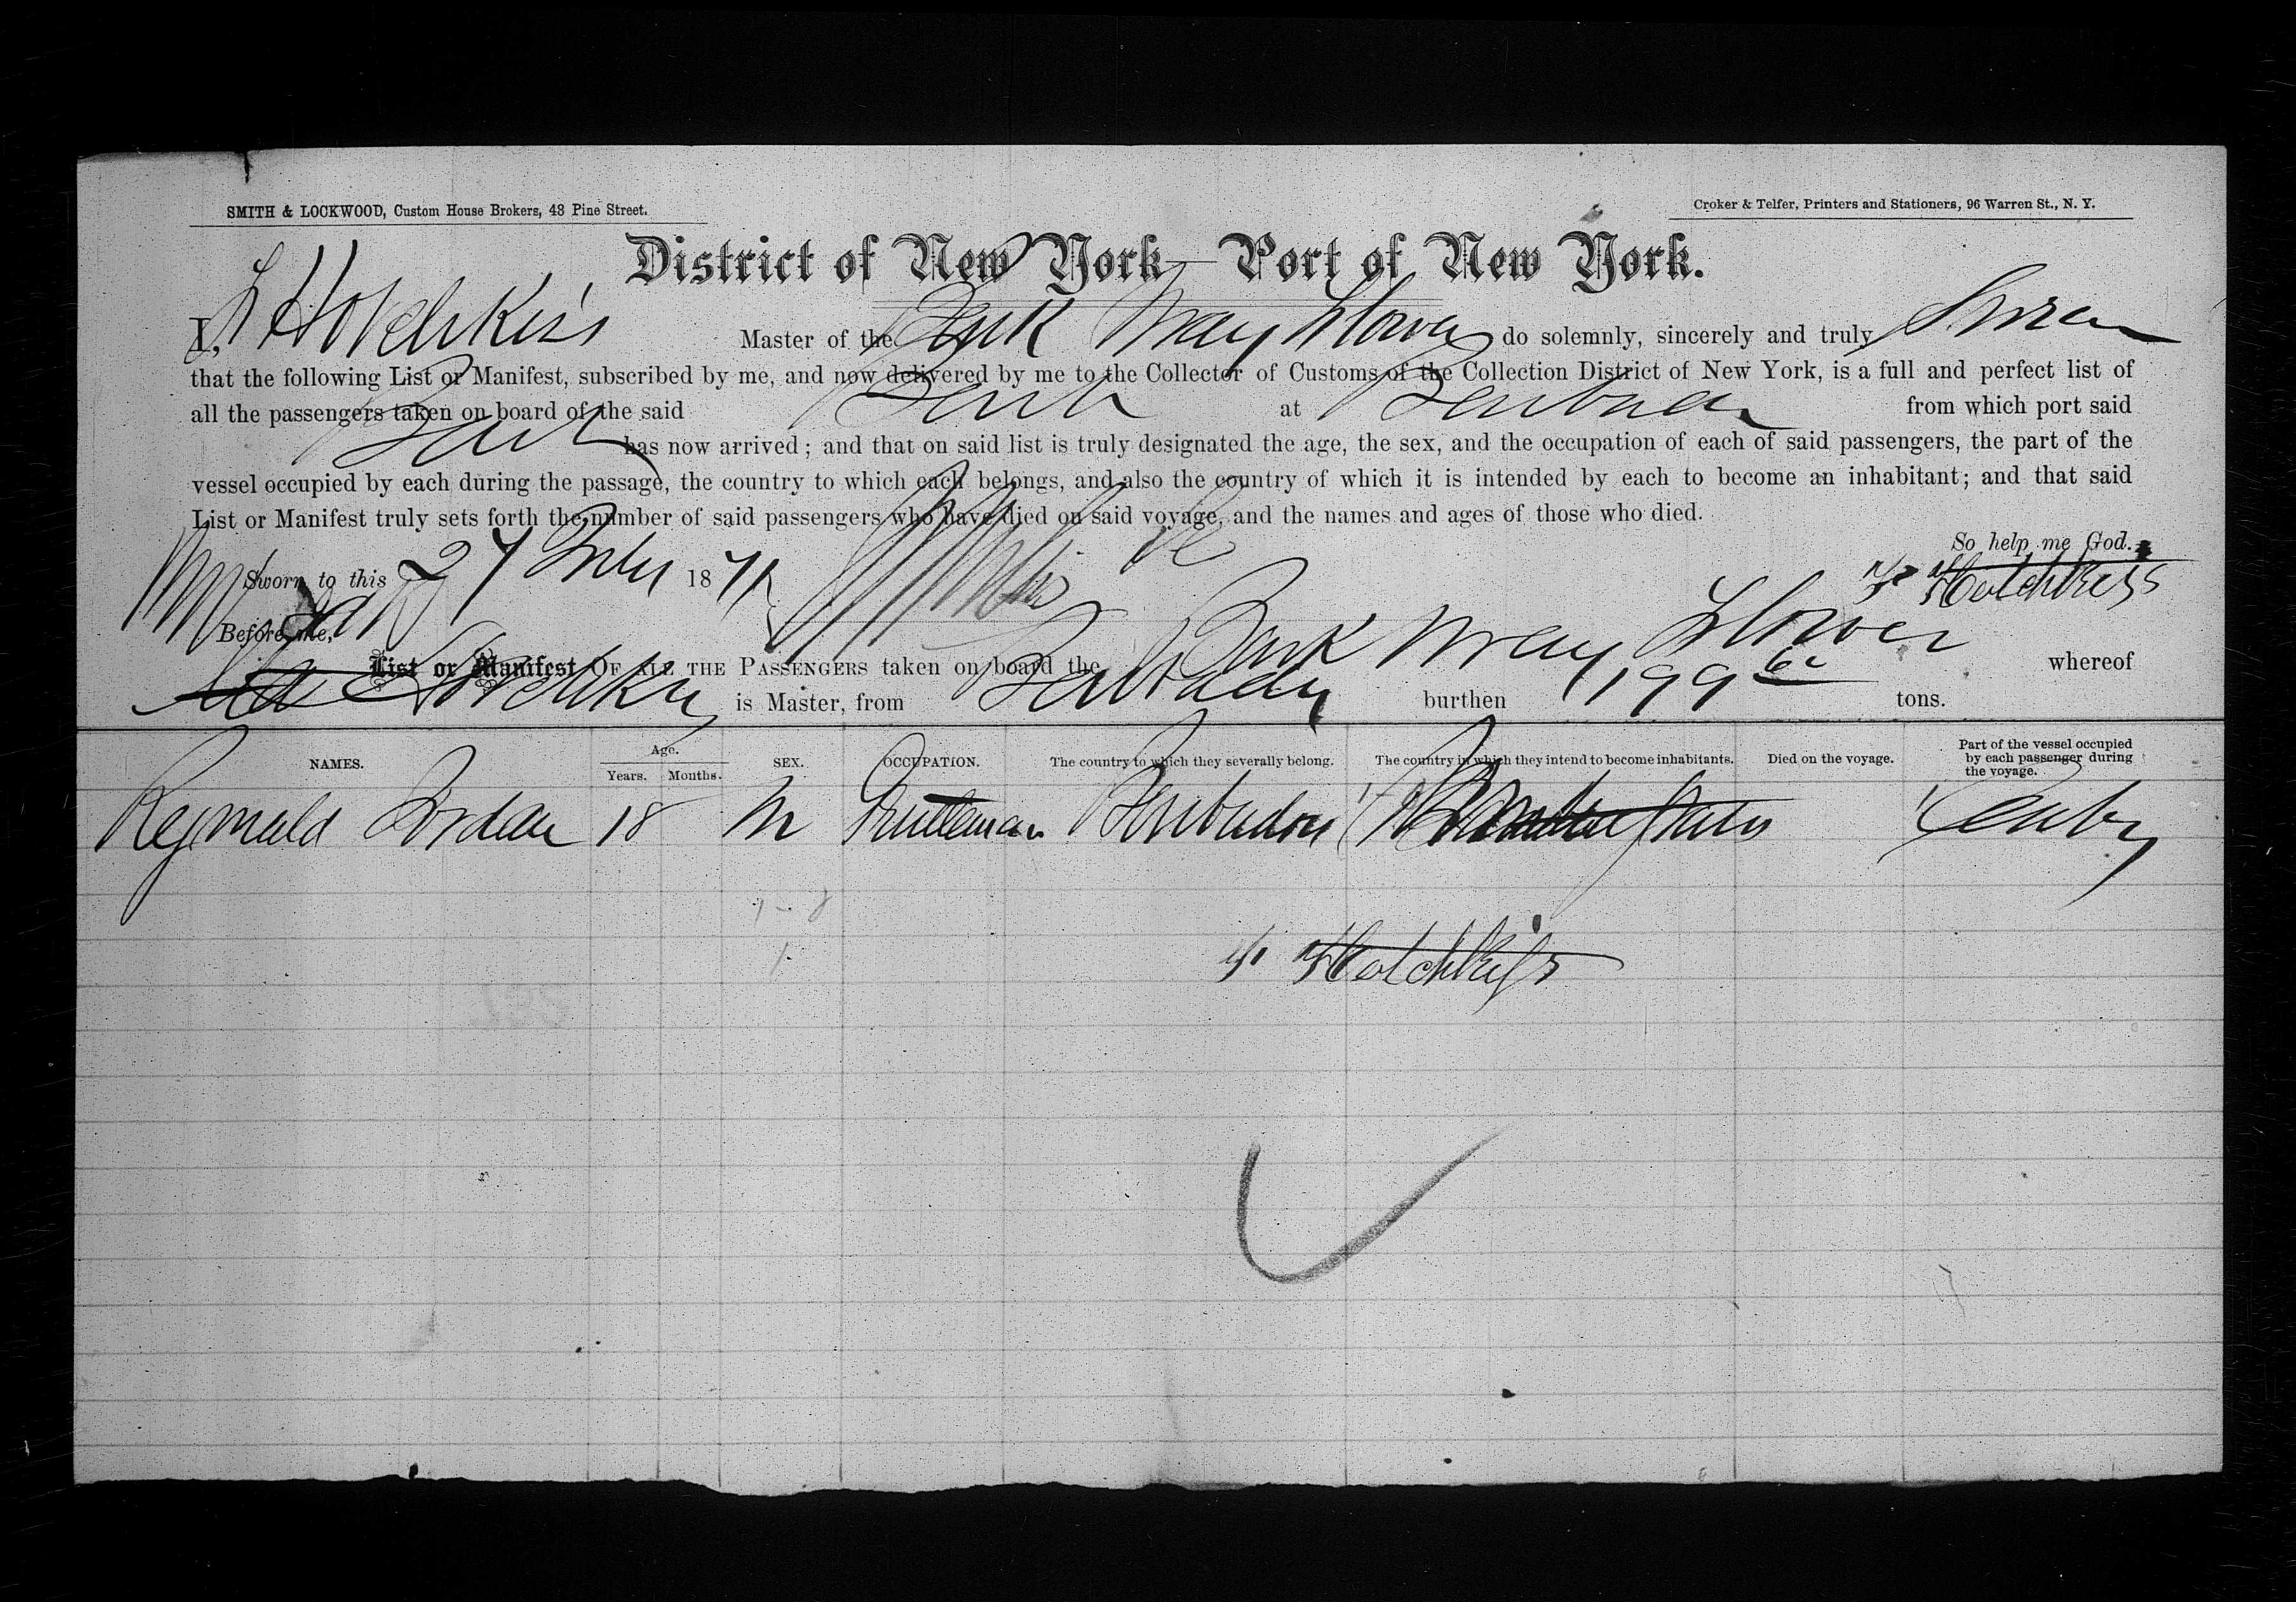 SMITH & LOCKWOOD, Custom House Brokers, 43 Pine Street.
Croker & Telfer, Printers and Stationers, 96 Warren St., N. Y.
District of New York—Port of New York.
I, Hotchkiss Master of the Bark May Flower do solemnly, sincerely and truly Swear
that the following List or Manifest, subscribed by me, and now delivered by me to the Collector of Customs of the Collection District of New York, is a full and perfect list of
all the passengers taken on board of the said Bark at Barbados from which port said
Bark has now arrived; and that on said list is truly designated the age, the sex, and the occupation of each of said passengers, the part of the
vessel occupied by each during the passage, the country to which each belongs, and also the country of which it is intended by each to become an inhabitant; and that said
List or Manifest truly sets forth the number of said passengers who have died on said voyage, and the names and ages of those who died.
So help me God.
Sworn to this 27 July 187
Hotchkiss
Before me,
List or Manifest OF ALL THE PASSENGERS taken on board the Bark May Flower whereof
Hotchkiss is Master, from Barbados burthen 199 tons.
NAMES. Age. Years. Months. SEX. OCCUPATION. The country to which they severally belong. The country in which they intend to become inhabitants. Died on the voyage. Part of the vessel occupied by each passenger during the voyage.
Reginald Jordan 18 M Gentleman Barbados States Cabin
Hotchkiss